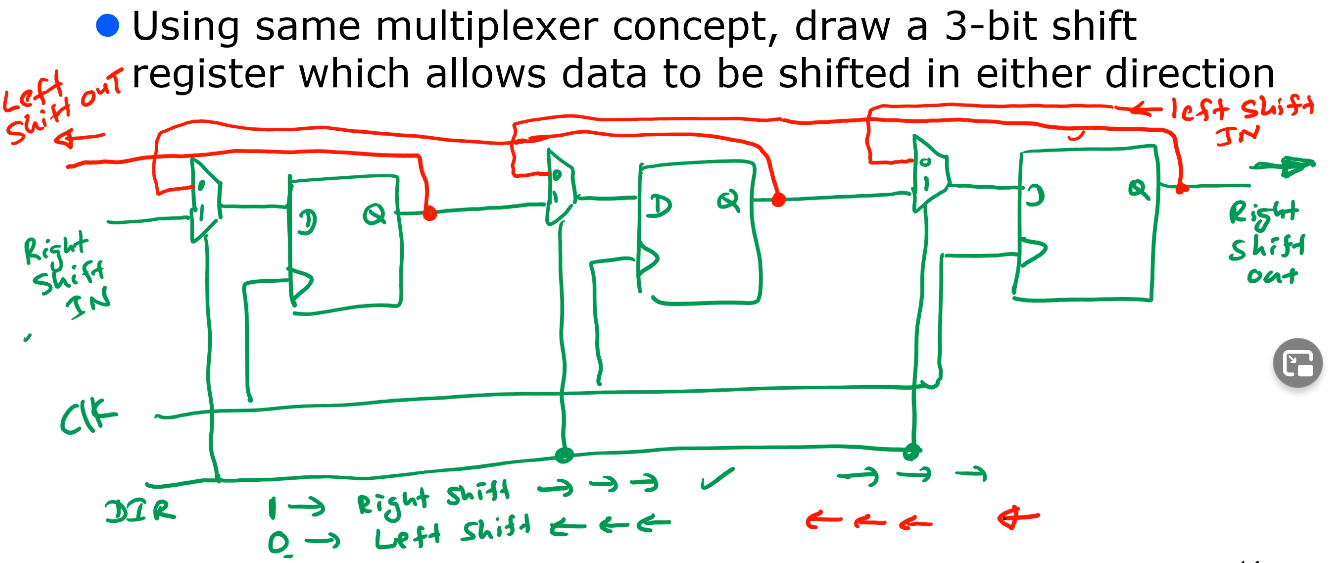 Using same multiplexer concept, draw a 3-bit shift
register which allows data to be shifted in either direction
Left
Shift OUT
left shift
IN
0
1
D
Q
0
1
D
Q
0
1
D
Q
Right
Shift
IN
Right
Shift
out
Clk
DIR
1 → Right Shift → → → ✓ → → →
0 → Left Shift ← ← ← ← ← ← ←